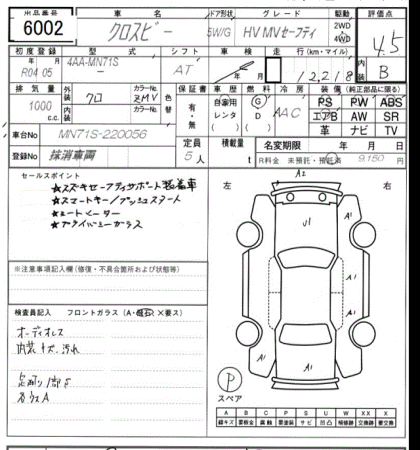 出品番号 車名 ドア形状 グレード 駆動 評価点
6002 クロスビー 5W/G HV MVセーフティ 2WD 4WD 4.5
初度登録 型式 シフト 車検 走行(km・マイル) 内装
年 月 4AA-MN71S 年 月
R04 05 AT 12,218 B
排気量 外装 色 カラーNo. 色替 保証書 車歴 燃料 冷房 装備(純正部品に限る)
1000 クロ ZMV 有・無 自家用 G AAC PS PW ABS
cc 内装 カラーNo. レンタ D エアB AW SR
革 ナビ TV
車台No MN71S-220056 定員 積載量 名変期限 年 月 日
登録No 抹消車両 5人 t R料金 未預託・預託 9,150 円
セールスポイント
★スズキセーフティサポート装着車
★スマートキー/プッシュスタート
★シートヒーター
★プライバシーガラス
左 右
A2
U1 A1
A1
A1
A1 A1 A1
※注意事項記入欄(修復・不具合箇所および状態等)
検査員記入 フロントガラス(A・飛石・X要ス)
オーディオレス
内装キズ、汚れ
P
スペア
A B C P S U W XX X
線キズ 要板金 腐蝕 要塗装 サビ 凹凸 補修跡 交換跡 要交換